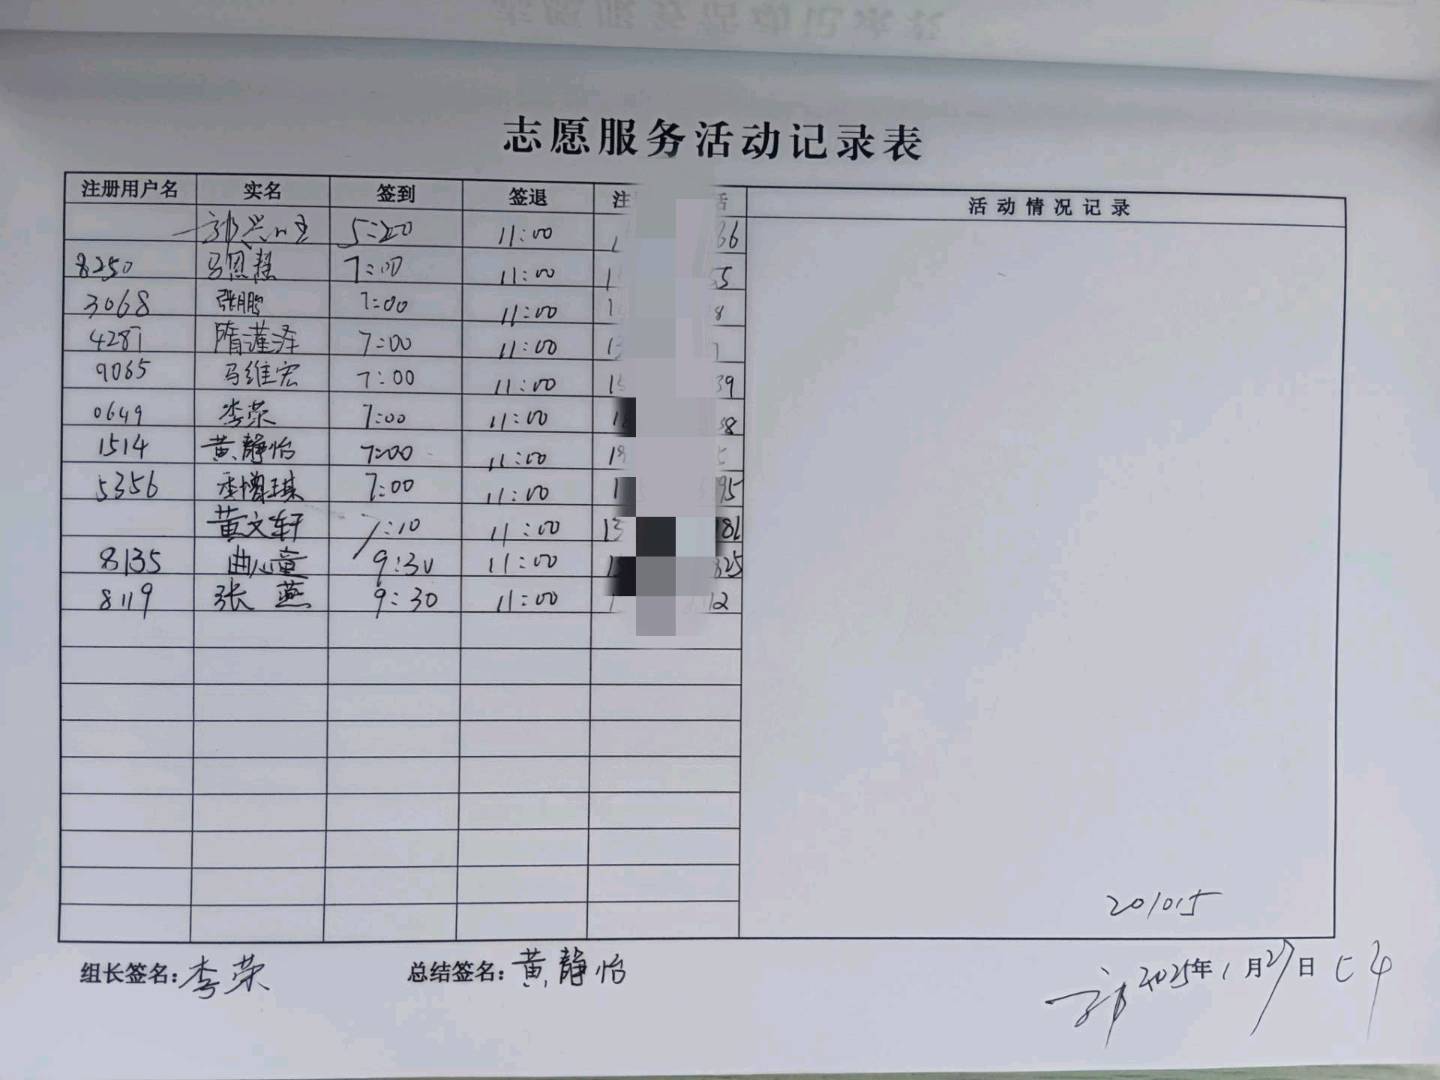 志愿服务活动记录表
注册用户名 实名 签到 签退 注 活动情况记录
郭兴 5:20 11:00 36
8250 马恩慧 7:00 11:00 55
3068 张鹏 7:00 11:00 8
4287 隋谨泽 7:00 11:00 13
9065 马维宏 7:00 11:00 15 39
0649 李荣 7:00 11:00 18 58
1514 黄静怡 7:00 11:00 5
5356 李增琪 7:00 11:00 1 95
黄文轩 7:10 11:00 13 181
8135 曲心童 9:30 11:00 325
8119 张燕 9:30 11:00 1 12
201015
组长签名:李荣 总结签名:黄静怡 2025年1月27日